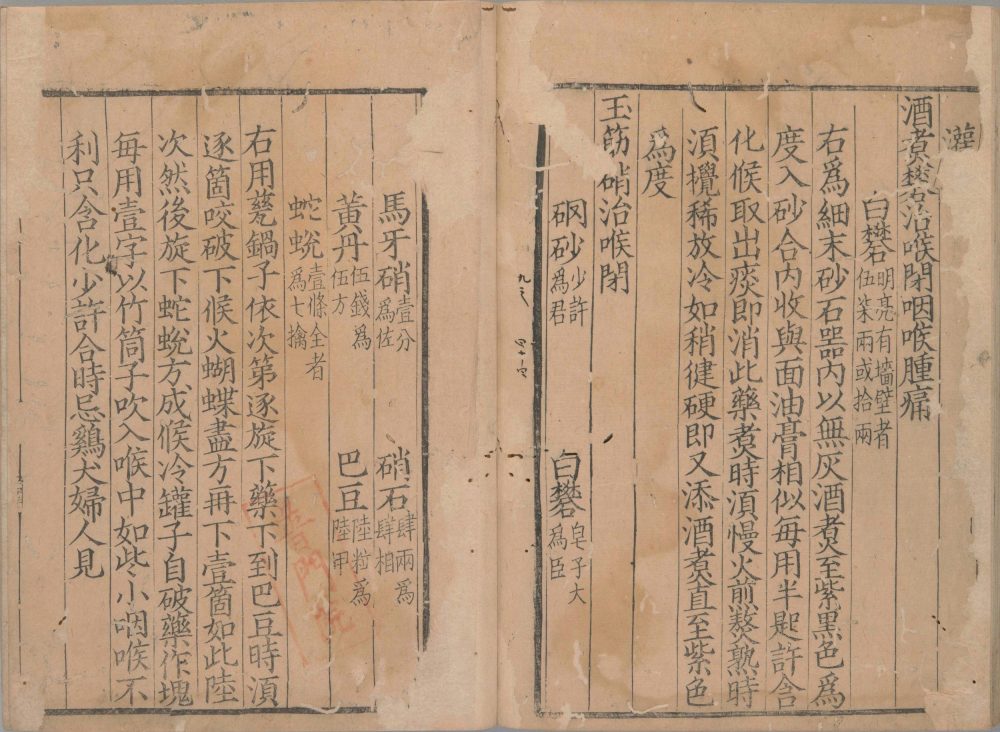 灌
酒煮礬治喉閉咽喉腫痛
白礬明亮有墻壁者伍柒兩或拾兩
右爲細末砂石器內以無灰酒煮至紫黑色爲
度入砂合內收與面油膏相似每用半匙許含
化候取出痰即消此藥煮時湏慢火煎熬熟時
湏攪稀放冷如稍徤硬即又添酒煮直至紫色
爲度
玉筋硝治喉閉
硇砂少許爲君 白礬皂子大爲臣
馬牙硝壹分爲佐 硝石肆兩爲肆相
黃丹伍錢爲伍方 巴豆陸粒爲陸甲
蛇蛻壹條全者爲七擒
右用甆鍋子依次第逐旋下藥下到巴豆時湏
逐箇咬破下候火蝴蝶盡方再下壹箇如此陸
次然後旋下蛇蛻方成候冷罐子自破藥作塊
每用壹字以竹筒子吹入喉中如些小咽喉不
利只含化少許合時忌鷄犬婦人見